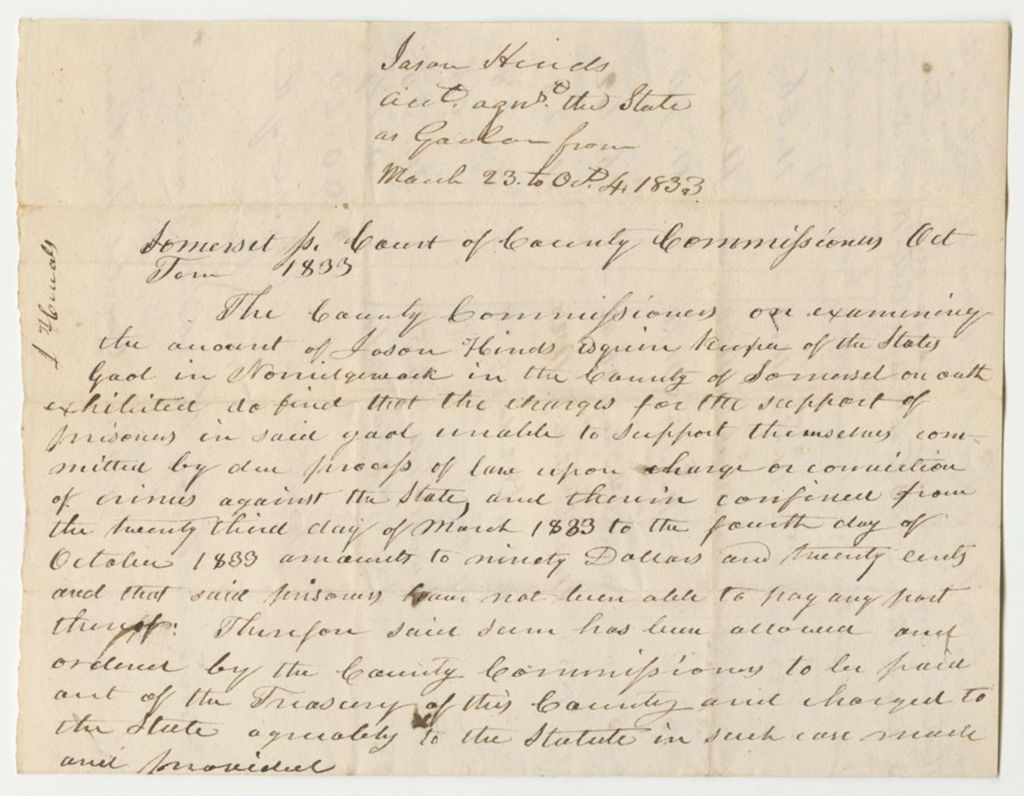 Jason Hinds
acct. agnst. the State
as Gaoler from
March 23. to Oct. 4. 1833
Somerset ss. Court of County Commissioners Oct
Term 1833
The County Commissioners on examining
the account of Jason Hinds Esquire Keeper of the States
Gaol in Norridgewock in the County of Somerset on oath
exhibited do find that the charges for the support of
prisoners in said gaol unable to support themselves com-
mitted by due process of law upon charge or conviction
of crimes against the State, and therein confined from
the twenty third day of March 1833 to the fourth day of
October 1833 amounts to ninety Dollars and twenty cents
and that said prisoners have not been able to pay any part
thereof: Therefore said sum has been allowed and
ordered by the County Commissioners to be paid
out of the Treasury of this County and charged to
the State agreeably to the Statute in such case made
and provided
J Hinds